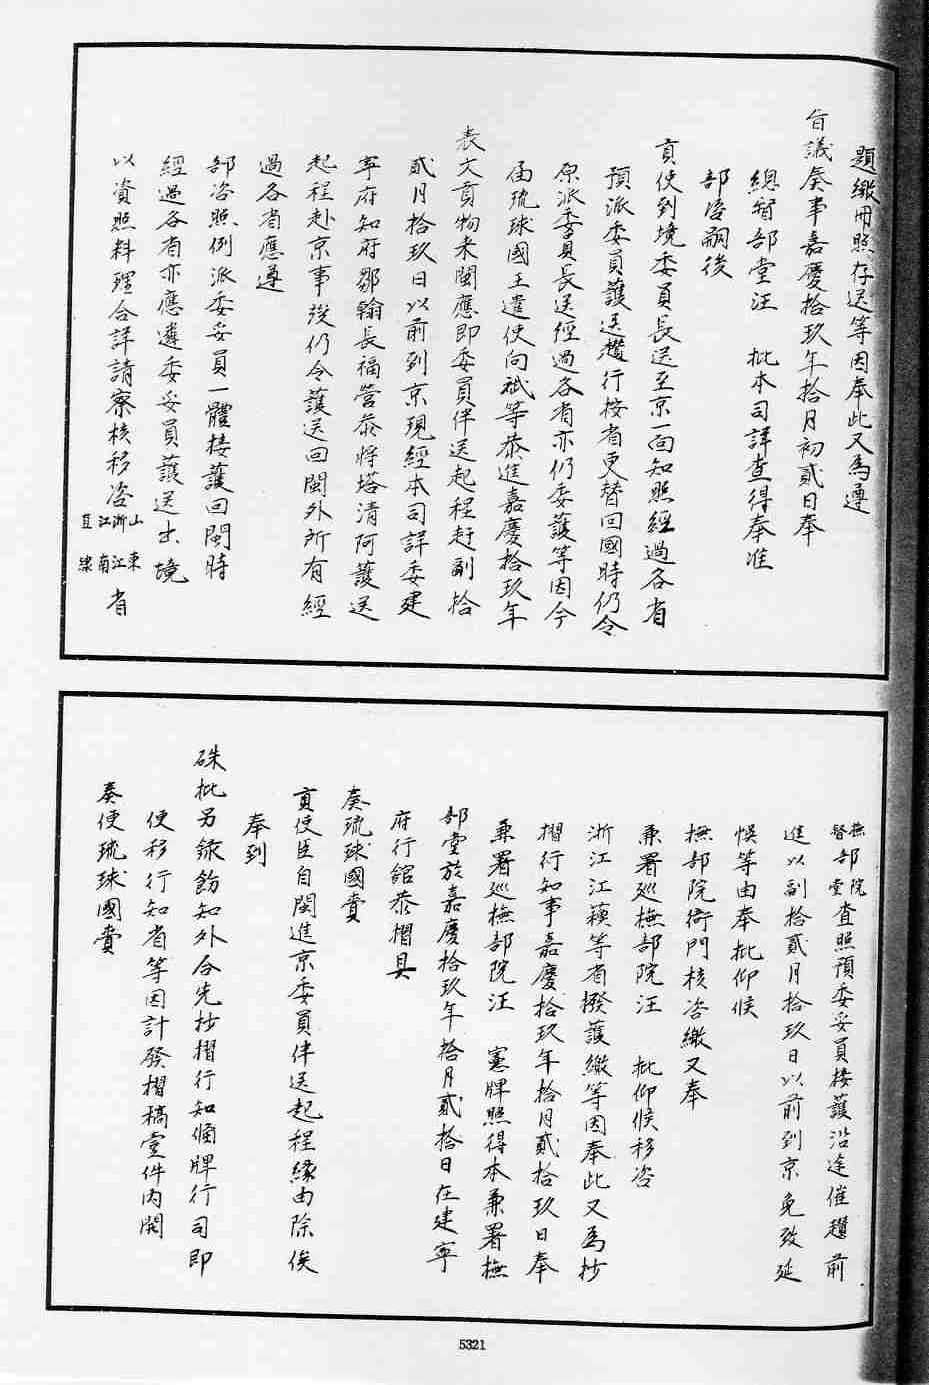 題繳冊照存送等因奉此又為遵
旨議奏事嘉慶拾玖年拾月初貳日奉
總督部堂汪　批本司詳查得奉准
部咨嗣後
貢使到境委員長送至京一面知照經過各省
預派委員護送攢行按省更替回國時仍令
原派委員長送經過各省亦仍委護等因今
届琉球國王遣使向祇等恭進嘉慶拾玖年
表文貢物来閩應即委員伴送起程赶副拾
貳月拾玖日以前到京現經本司詳委建
寧府知府鄒翰長福營恭將塔清阿護送
起程赴京事竣仍令護送回閩外所有經
過各省應遵
部咨照例派委妥員一體接護回閩時
經過各省亦應遴委妥員護送出境
以資照料理合詳請察核移咨山東浙江江南直隸省
撫院督堂部查照預委妥員接護沿途催趲前
進以副拾貳月拾玖日以前到京免致延
悞等由奉批仰候
撫部院衙門核咨繳又奉
兼署巡撫部院汪　批仰候移咨
浙江江蘇等省撥護繳等因奉此又為抄
摺行知事嘉慶拾玖年拾月貳拾玖日奉
兼署巡撫部院汪　憲牌照得本兼署撫
部堂於嘉慶拾玖年拾月貳拾日在建寧
府行館恭摺具
奏琉球國賫
貢使臣自閩進京委員伴送起程緣由除俟
奉到
硃批另錄飭知外合先抄摺行知備牌行司即
便移行知省等因計發摺稿壹件内開
奏使琉球國賫
5321